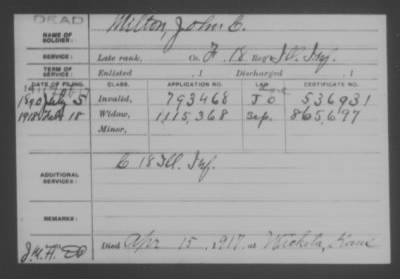 DEAD
NAME OF SOLDIER: Milton, John C.
SERVICE: Late rank, Co. F, 18 Reg't Ill. Inf.
TERM OF SERVICE: Enlisted , 1 Discharged , 1
DATE OF FILING. CLASS. APPLICATION NO. LAW. CERTIFICATE NO.
1890 July 5 Invalid, 793468 J O 536931
1918 Feb 18 Widow, 1,115,368 Sep. 865,697
Minor,
ADDITIONAL SERVICES: C 18 Ill. Inf.
REMARKS:
Died Apr 15, 1917, at Wichita, Kans